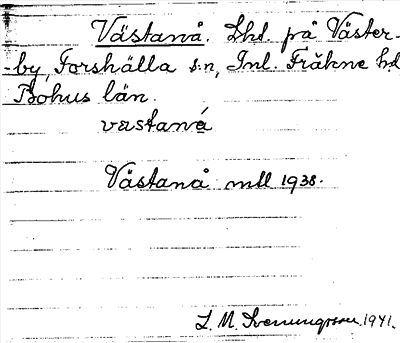 Västanå. Lhl. på Väster-
by, Forshälla s:n, Inl. Fräkne hd
Bohus län.
væstaná
Västanå mtl 1938.
L. M. Svenungsson. 1941.